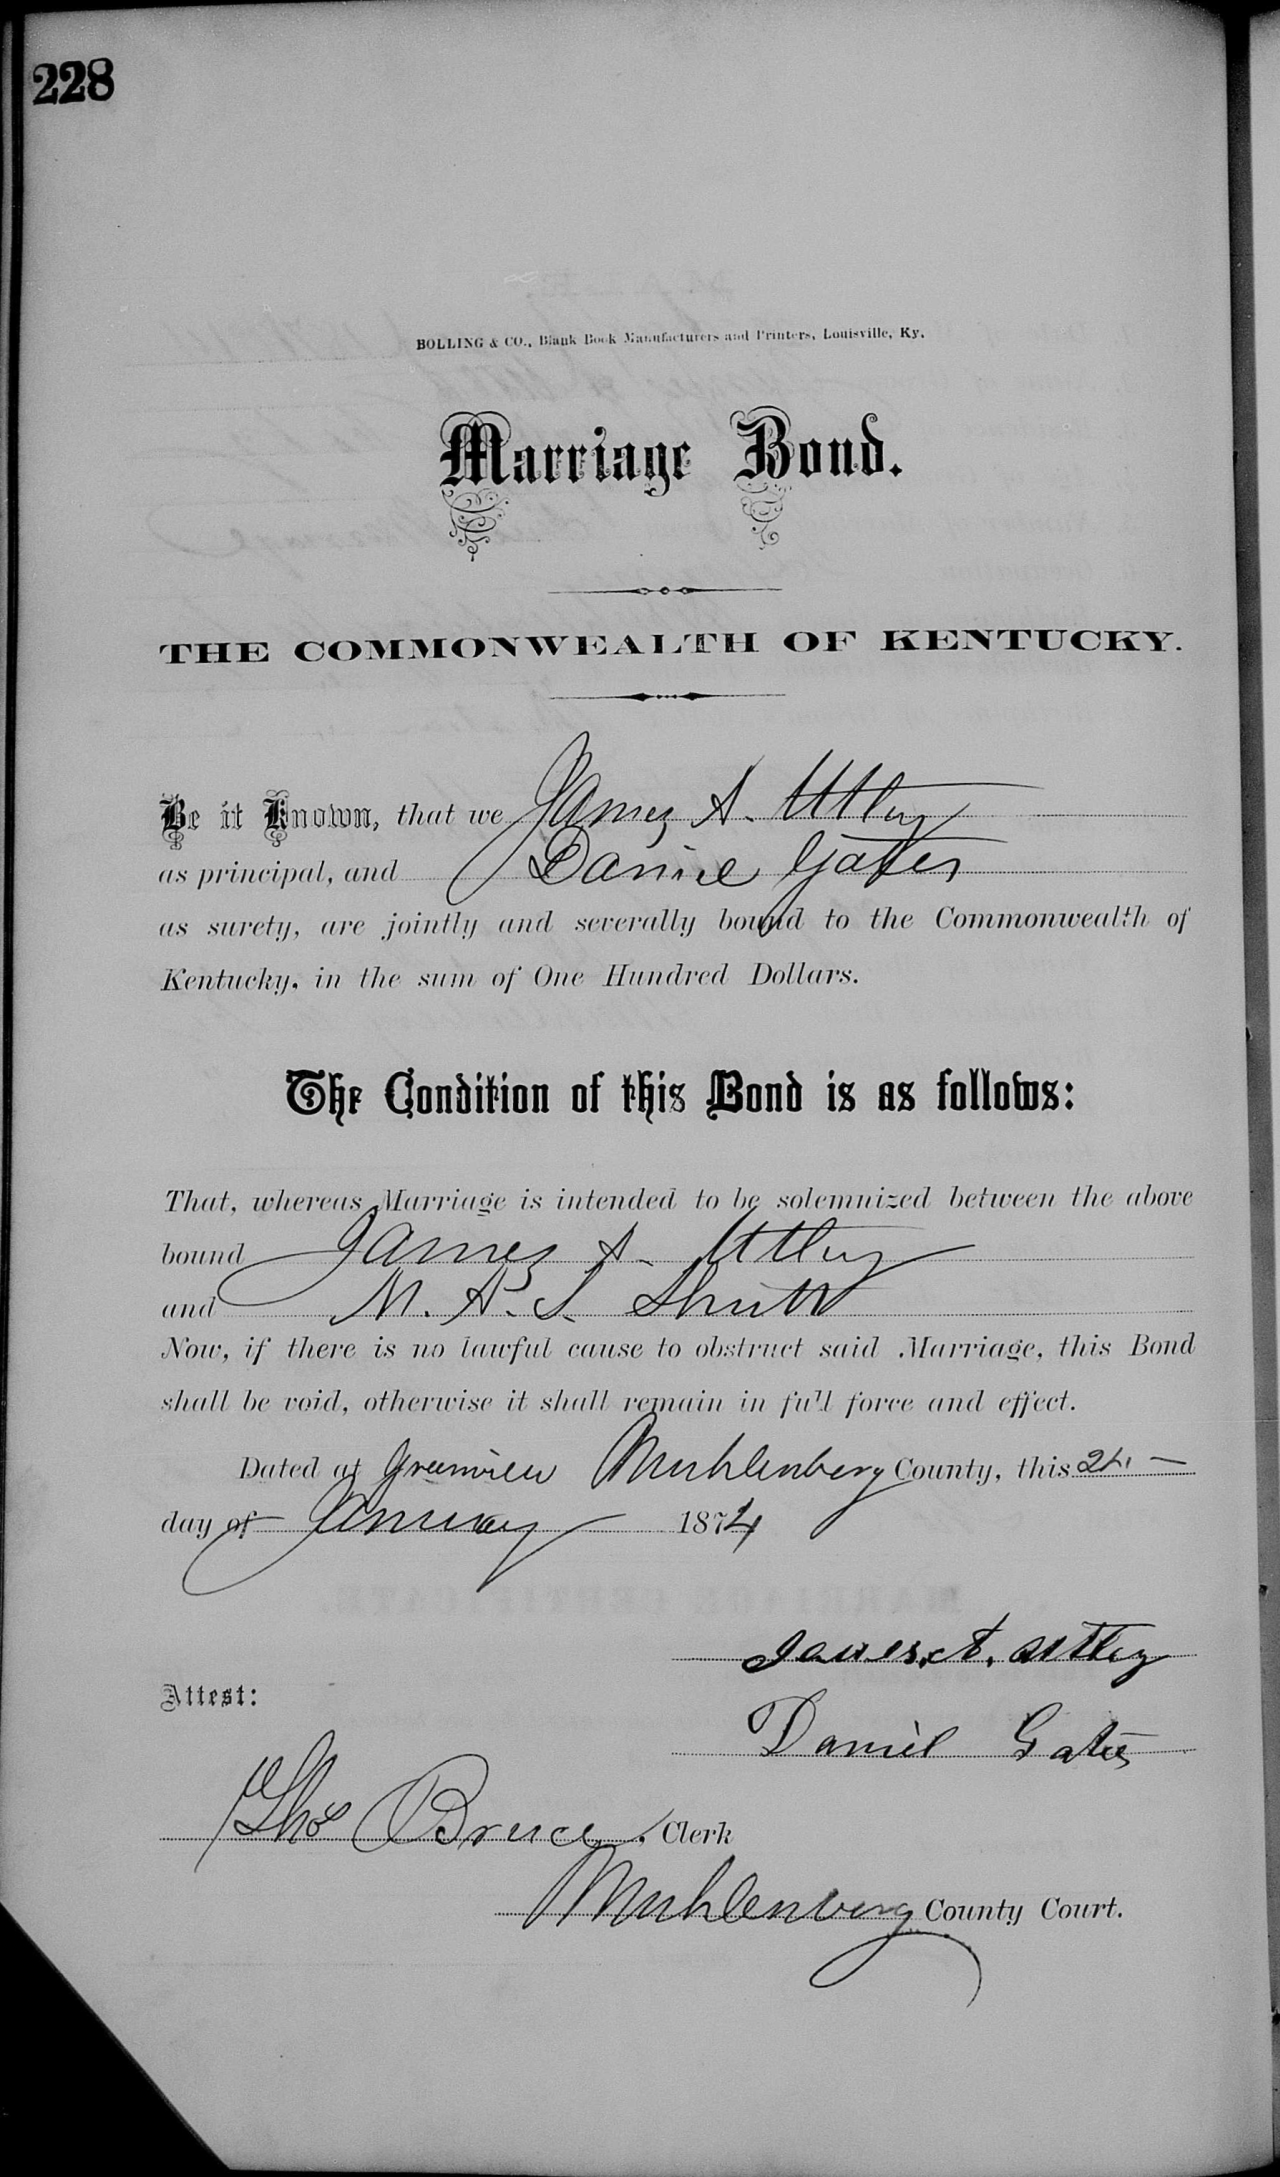 228
BOLLING & CO., Blank Book Manufacturers and Printers, Louisville, Ky.
Marriage Bond.
THE COMMONWEALTH OF KENTUCKY.
Be it Known, that we James A. Utley
as principal, and Daniel Gates
as surety, are jointly and severally bound to the Commonwealth of
Kentucky, in the sum of One Hundred Dollars.
The Condition of this Bond is as follows:
That, whereas Marriage is intended to be solemnized between the above
bound James A. Utley
and M. A. S.
Now, if there is no lawful cause to obstruct said Marriage, this Bond
shall be void, otherwise it shall remain in full force and effect.
Dated at Greenville Muhlenberg County, this 24.
day of January 1874
James. A. Utley
Attest:
Daniel Gates
Thos Bruce, Clerk
Muhlenberg County Court.